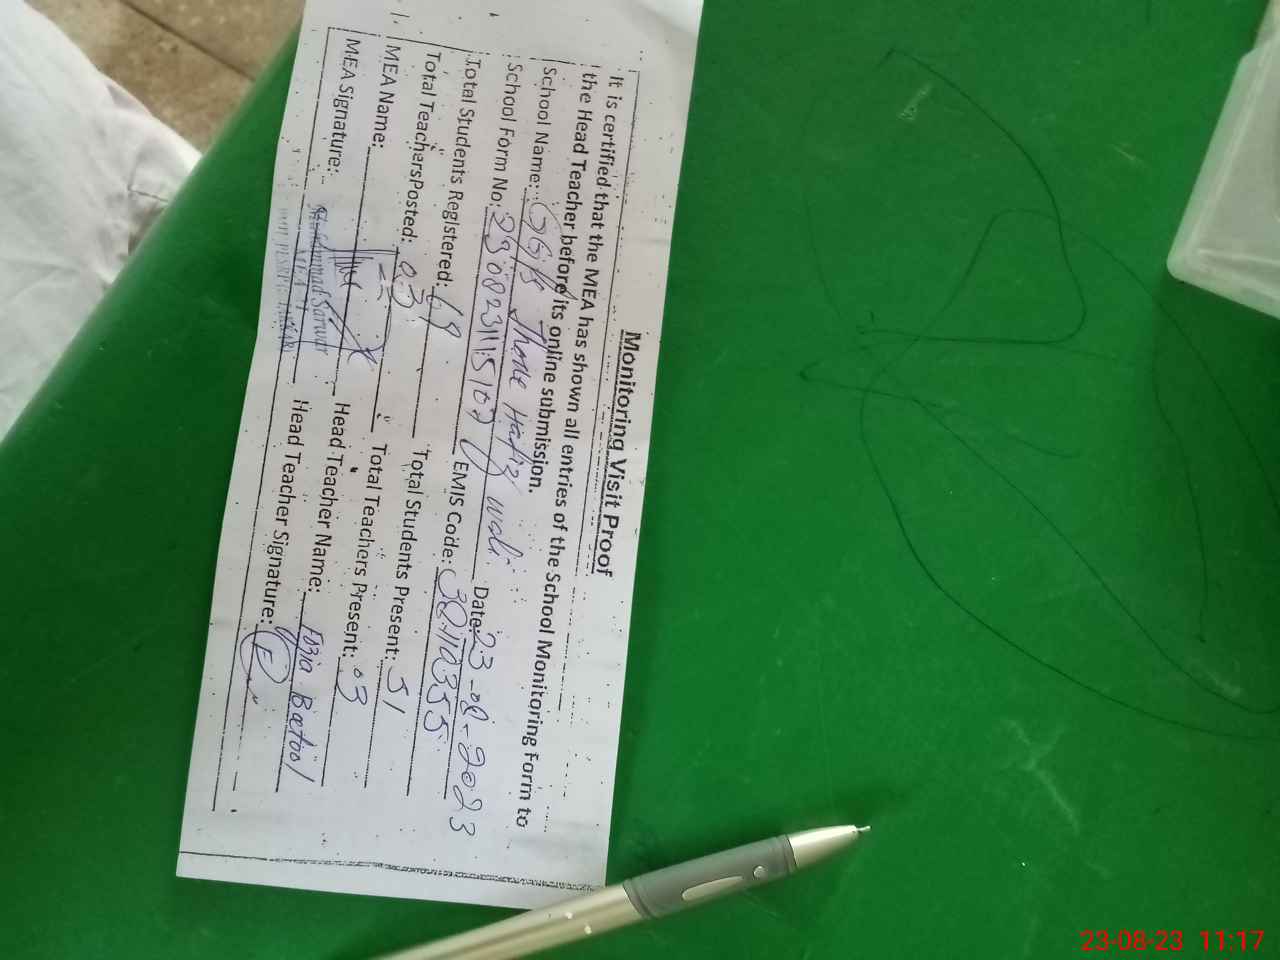 Monitoring Visit Proof
It is certified that the MEA has shown all entries of the School Monitoring Form to
the Head Teacher before its online submission.
School Name: GGPS Thode Hafiz wali Date: 23-08-2023
School Form No: EMIS Code: 38110355
Total Students Registered: 69 Total Students Present: 51
Total Teachers Posted: 03 Total Teachers Present: 03
MEA Name: Head Teacher Name: Batool
MEA Signature: Head Teacher Signature:
Muhammad Sarwar
MEA
23-08-23 11:17